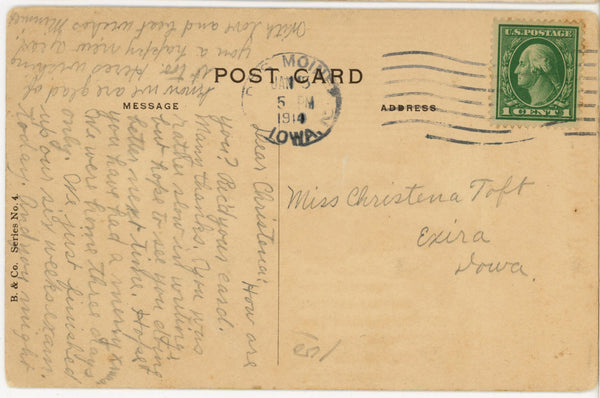 POST CARD
MESSAGE
ADDRESS
B. & Co. Series No. 4.
U.S. POSTAGE
1 CENT 1
DES MOINES
JAN 5
5 PM
1914
IOWA.
Miss Christena Toft
Exira
Iowa.
Dear Christena: How are
you? Rec'd your card.
Many thanks. You was
rather slow in writing
but hope to see you doing
better next time. Hope
you have had a merry xmas
We were home three days
only. We just finished
up our six weeks exam.
today. And you might
know we are glad of
it too. Here's wishing
you a happy new year.
With love and best wishes Minnie